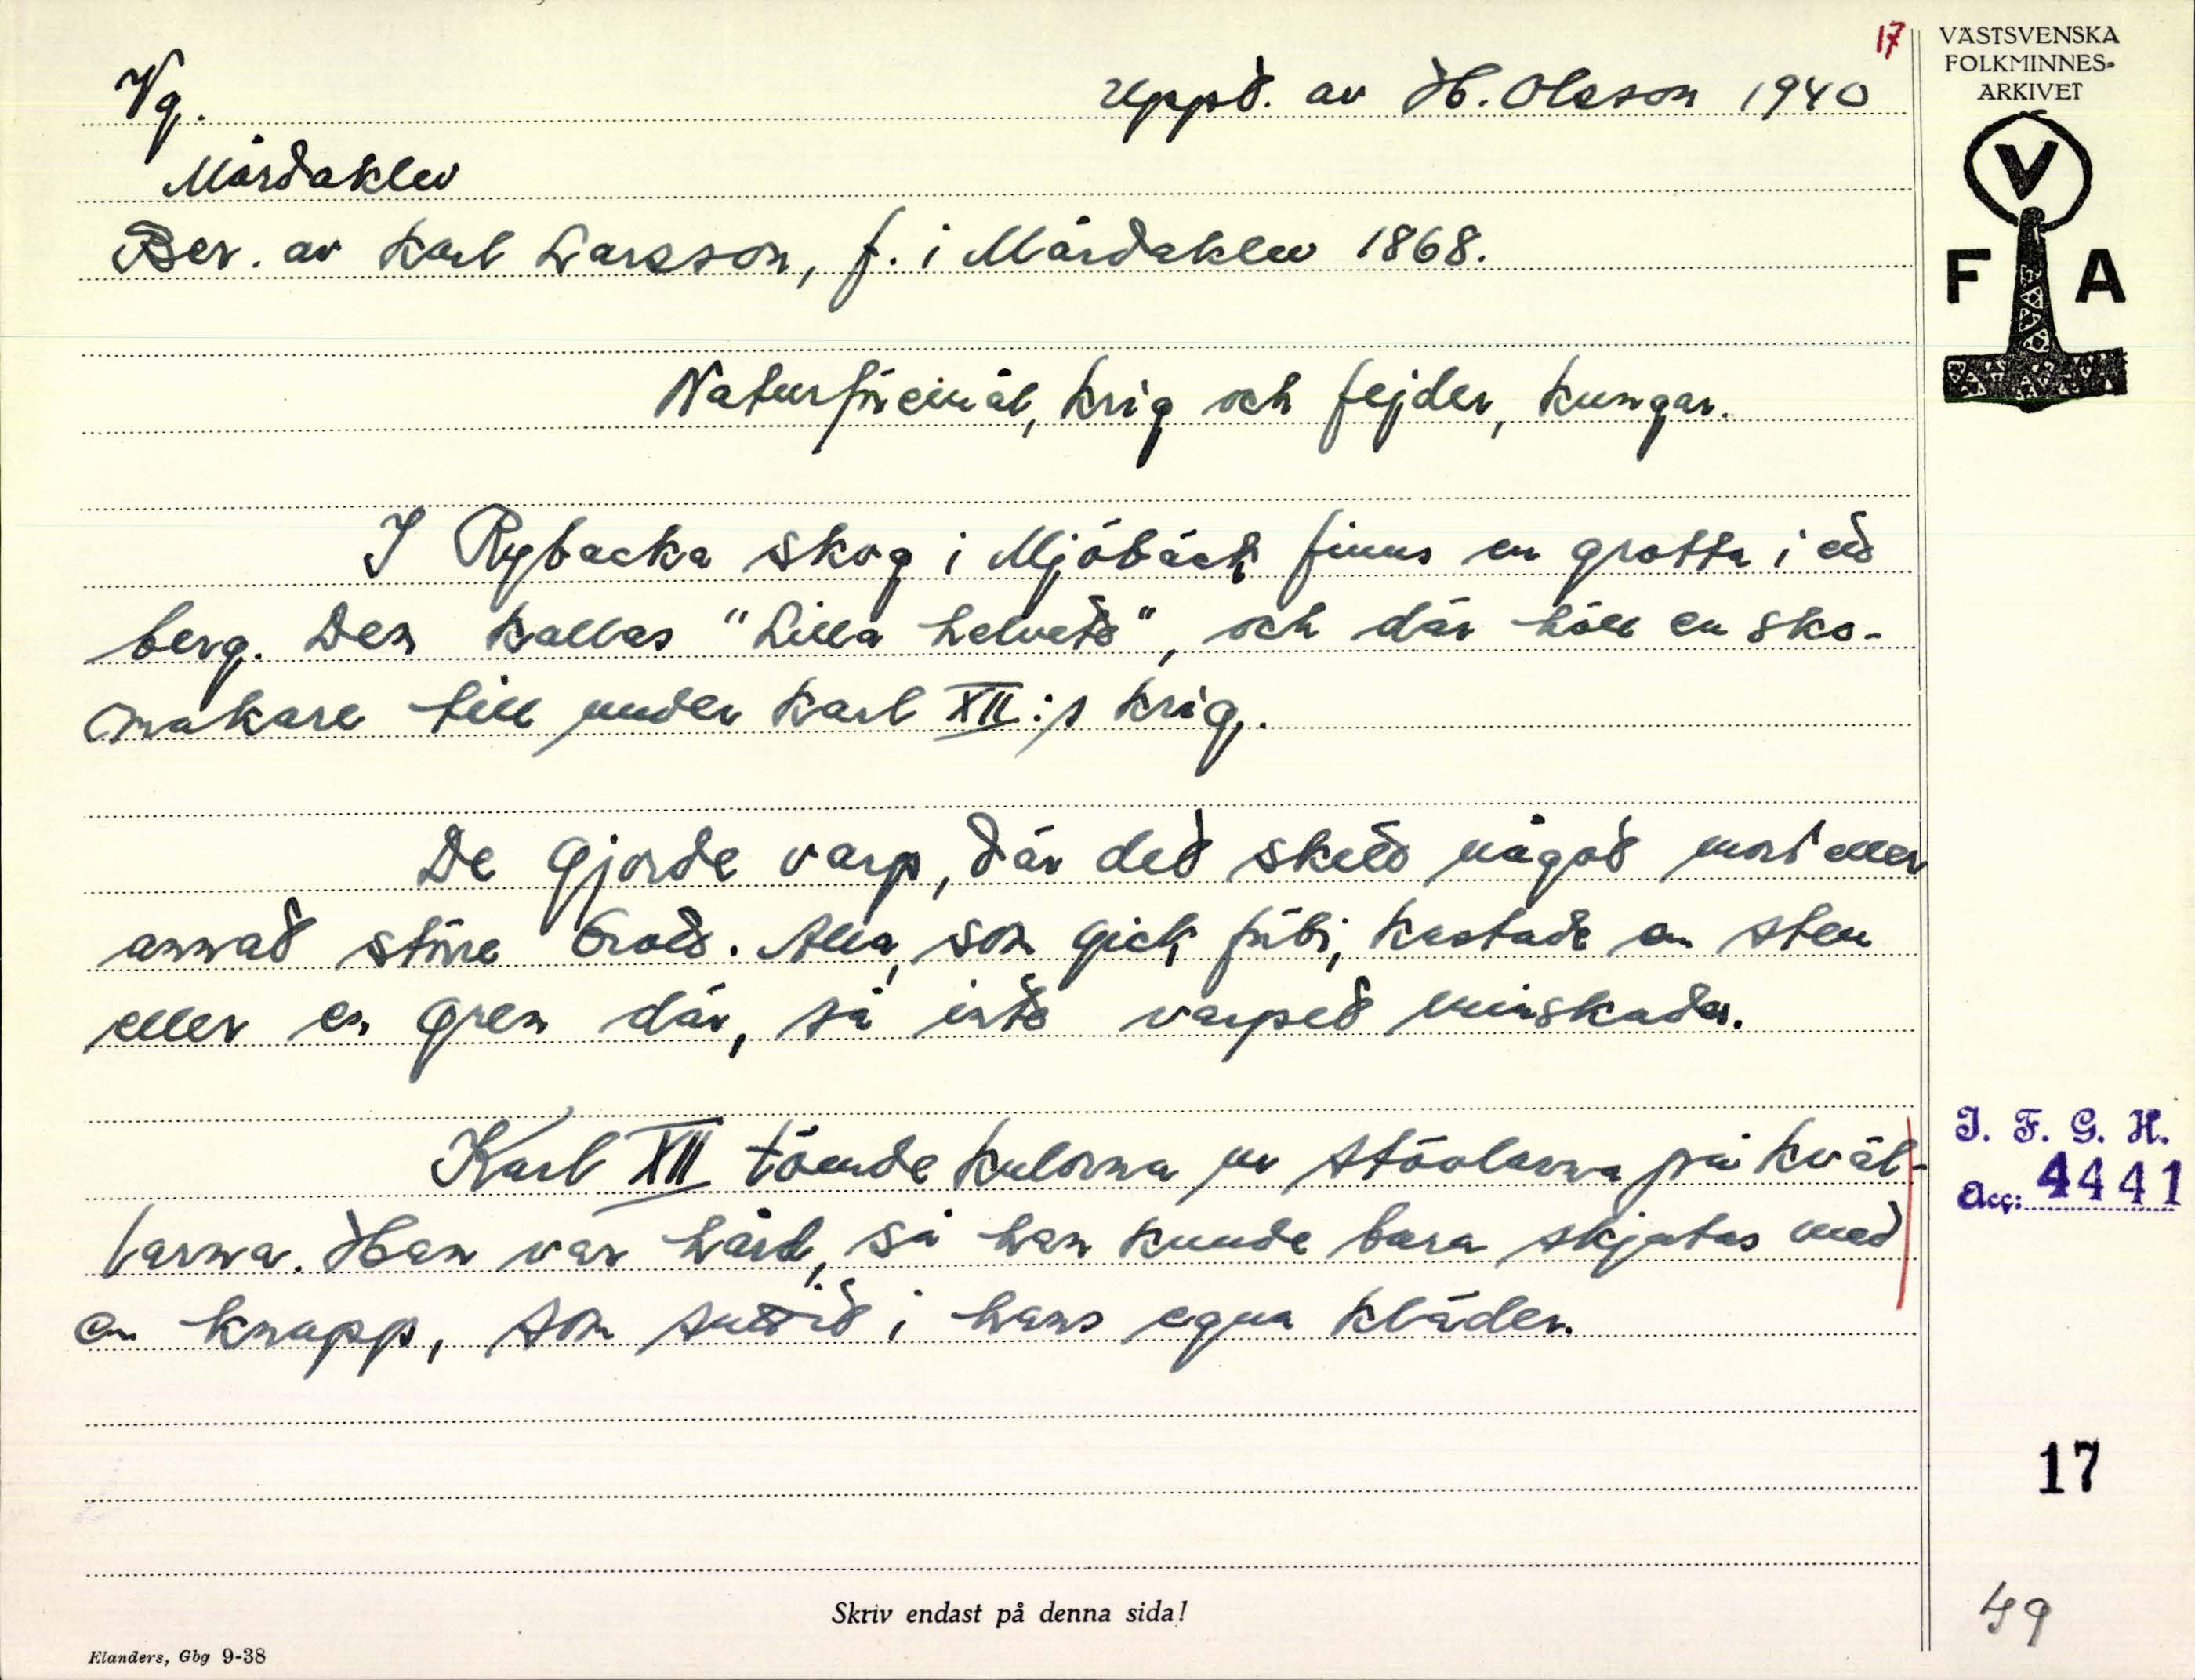 17
VÄSTSVENSKA
FOLKMINNES-
ARKIVET
V
F A
Vg. Uppt. av H. Olsson 1940
Mårdaklev
Ber. av Karl Larsson, f. i Mårdaklev 1868.
Naturföremål, krig och fejder, kungar.
I Rybacka skog i Mjöbäck finns en grotta i ett
berg. Den kallas "Lilla helvete", och där höll en sko-
makare till under Karl XII:s krig.
De gjorde varp, där det skett något mord eller
annat större brott. Alla, som gick förbi, kastade en sten
eller en gren där, så inte varpet minskades.
Karl XII tömde kulorna ur stövlarna på kväl-
larna. Han var hård, så han kunde bara skjutas med
en knapp, som suttit i hans egna kläder.
I. F. G. H.
Acc: 4441
17
49
Skriv endast på denna sida!
Elanders, Gbg 9-38